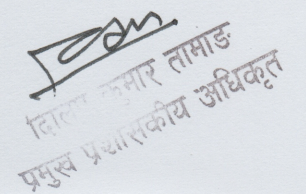 कुमार तामाङ
प्रमुख प्रशासकीय अधिकृत